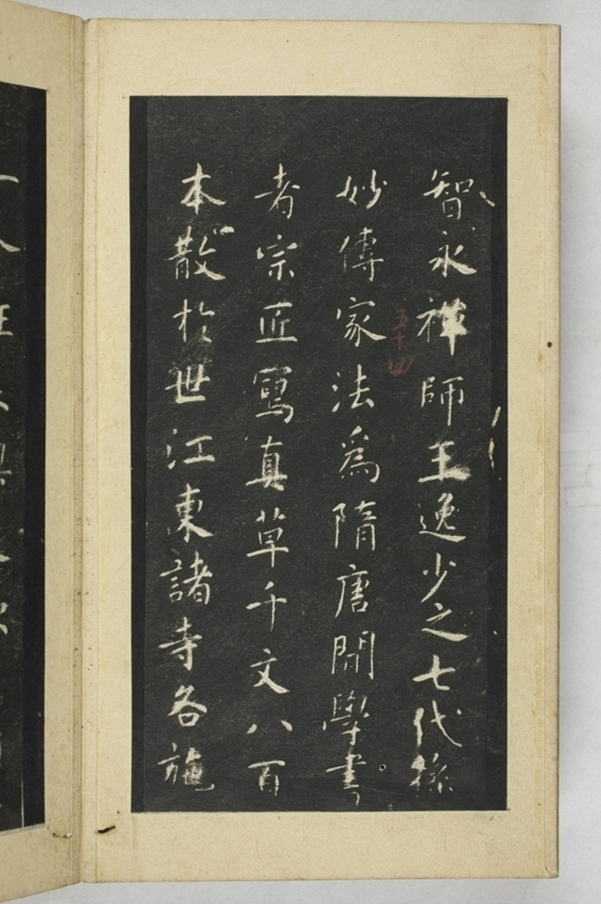 智永禪師王逸少之七代孫
妙傳家法為隋唐間學書
者宗匠寫真草千文八百
本散於世江東諸寺各施
五十四